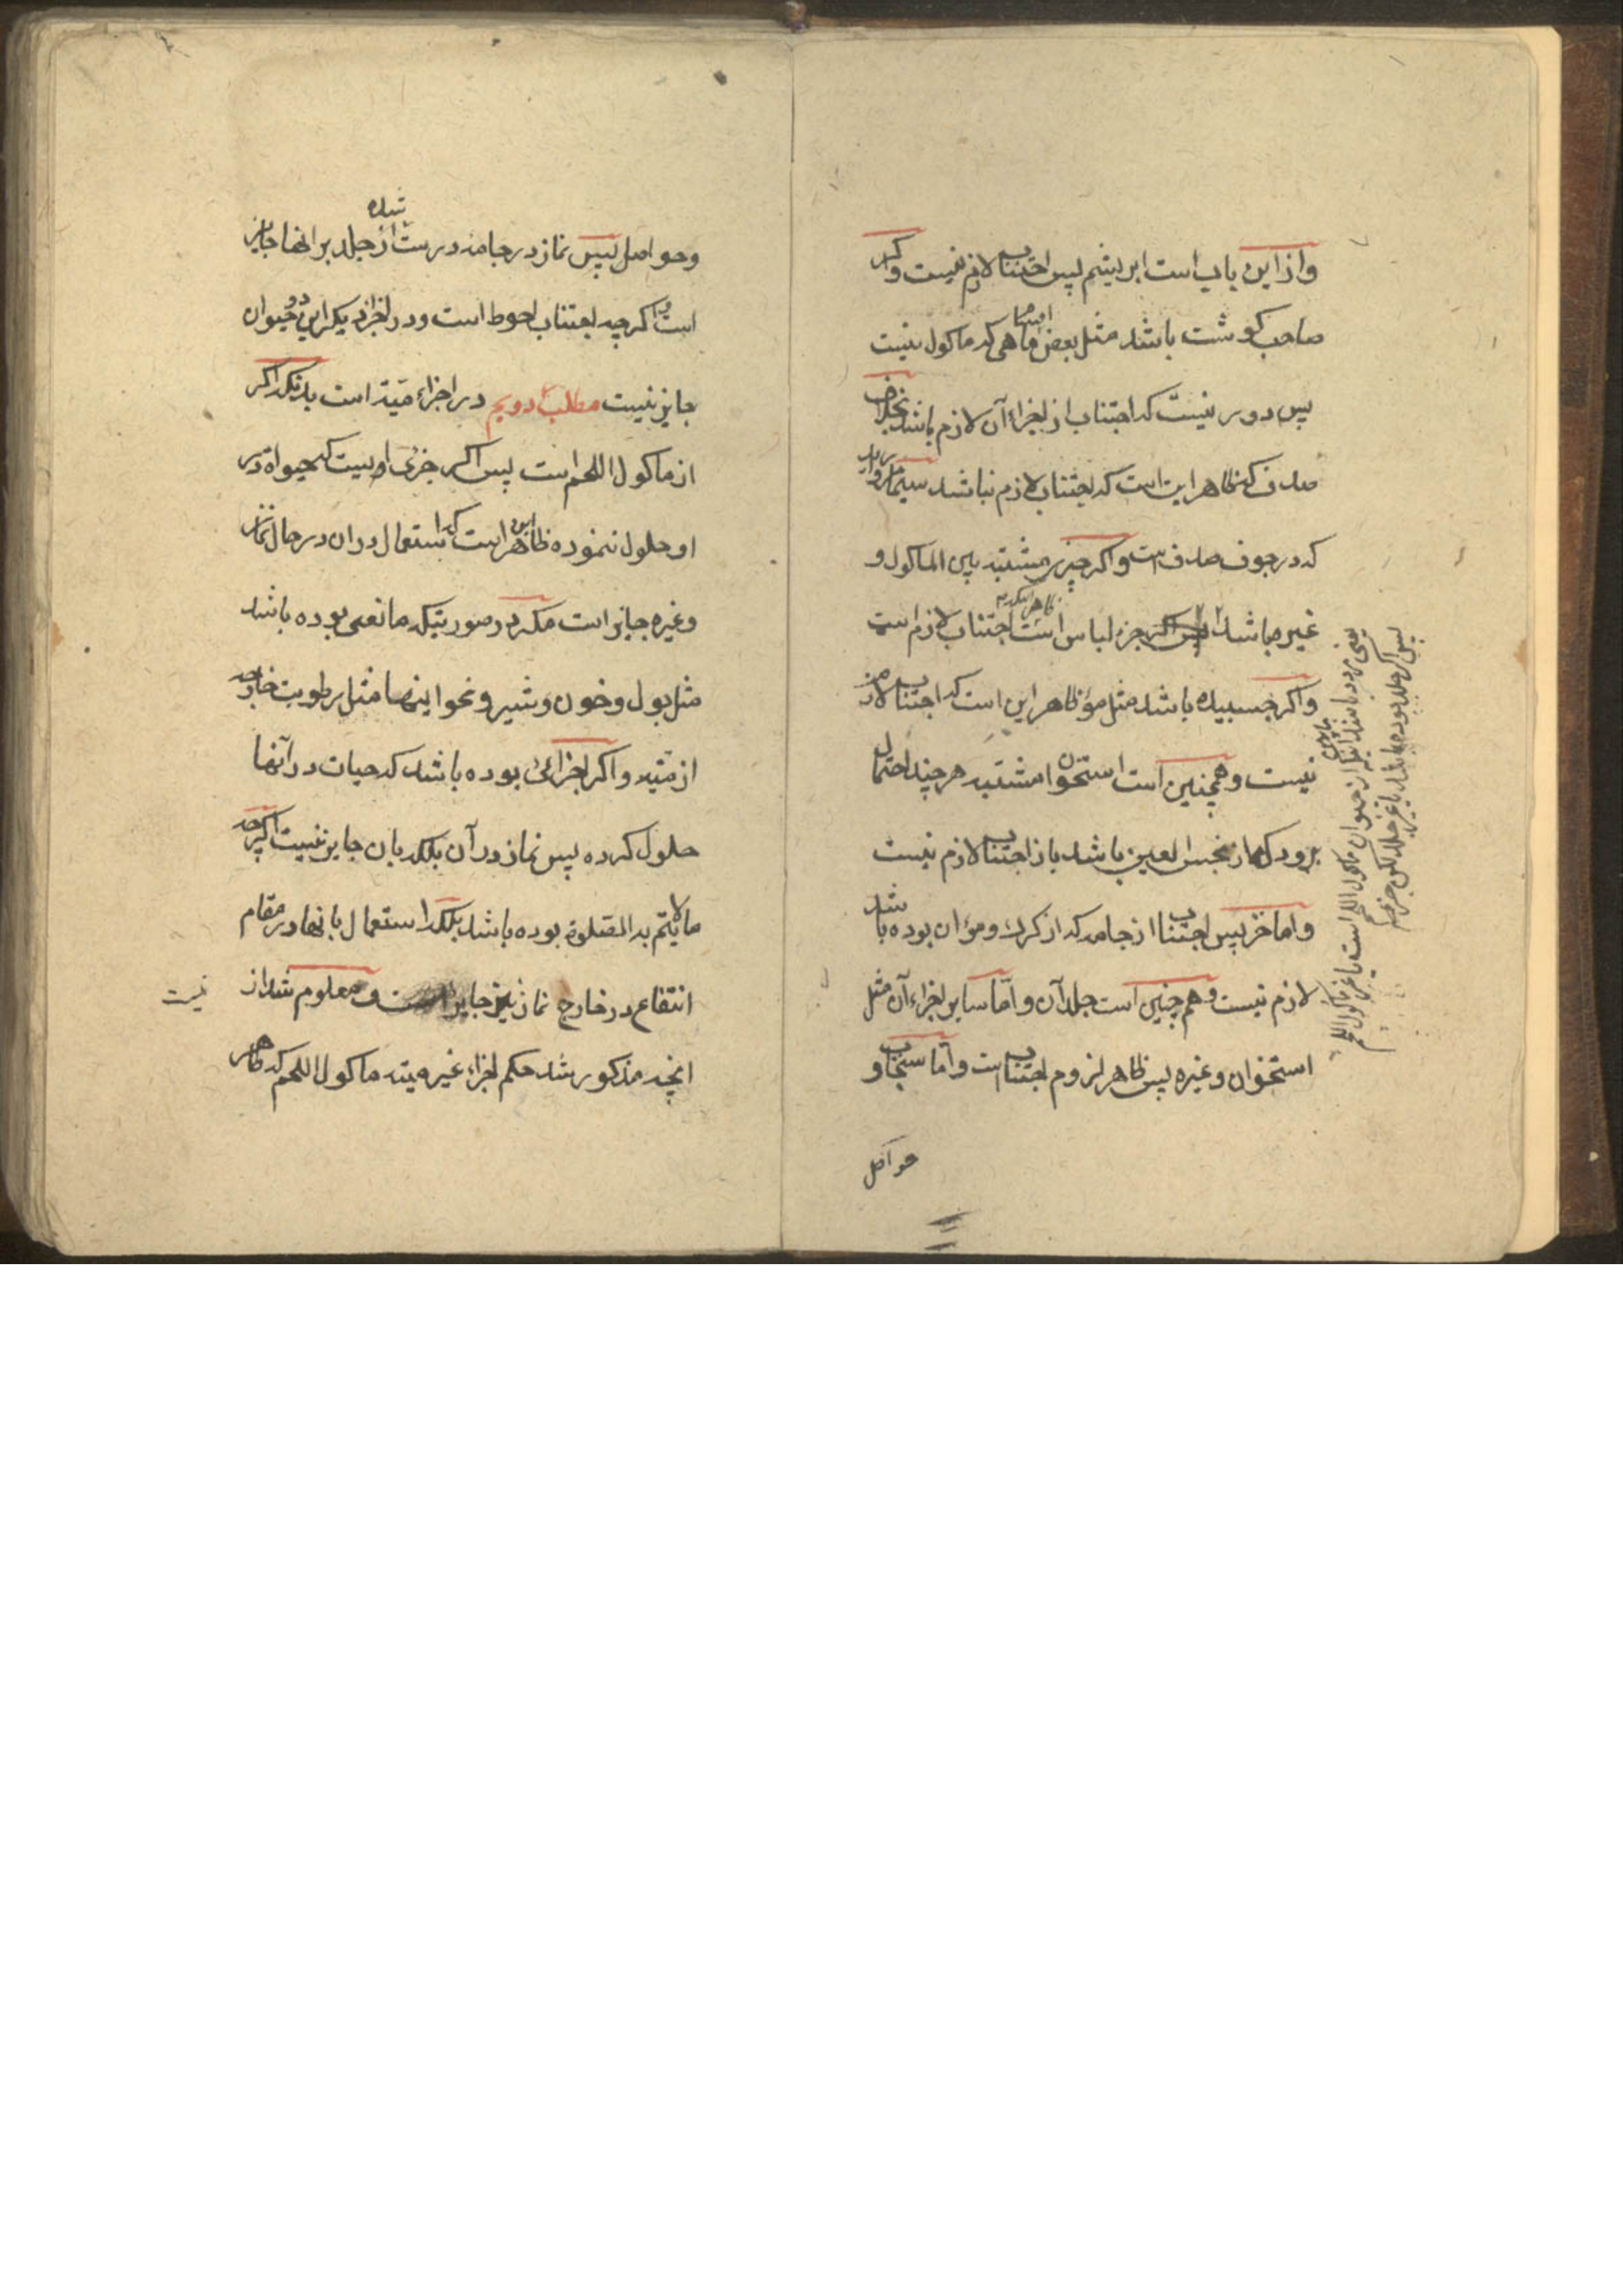 و از این باب است ابریشم پس اجتناب لازم نیست و اگر
صاحب گوشت باشد مثل بعض اقسام ماهی که ماکول نیست
پس دور نیست که اجتناب از اجزاء آن لازم باشد بخلاف
صدف که ظاهر این است که اجتناب لازم نباشد سیما مروارید
که در جوف صدف است و اگر چیزی مشتبه بین الماکول و
غیره باشد جزء لباس است اجتناب لازم است
و اگر چسبیده باشد مثل مو ظاهر این است که اجتناب لازم
نیست و همچنین است استخوان مشتبه هر چند احتمال
برود که از نجس العین باشد باز اجتناب لازم نیست
و اما خز پس اجتناب از جامه که از کرک و مو ان بوده باشد
لازم نیست و هم چنین است جلد آن و امّا سایر اجزاء آن مثل
استخوان و غیره پس ظاهر لزوم اجتناب است و امّا سنجاب و
حواصل
پس اگر جلد بوده باشد یا غیر جلد لکن جزء
از حیوان ماکول اللحم است یا غیر ماکول اللحم
و حواصل پس نماز در جامه درست شده از جلد بر انها جایز
است و اگر چه اجتناب احوط است و در اجزاء دیگر این دو حیوان
جایز نیست مطلب دویم در اجزاء میّته است بدانکه اگر
از ماکول اللحم است پس اگر جزئی او نیست که حیواة در
او حلول ننموده ظاهر این است که استعمال دران در حال نماز
و غیره جایز است مگر در صورتیکه مانعی بوده باشد
مثل بول و خون و شیر و نحو اینها مثل رطوبت خارجه
از میّته و اگر اجزائی بوده باشد که حیات در آنها
حلول کرده پس نماز در آن بلکه بان جایز نیست اگر چه
ما لا یتم به الصّلوة بوده باشد بلکه استعمال بانها در مقام
انتفاع در خارج نماز نیز جایز نیست و معلوم شد از
انچه مذکور شد حکم اجزاء غیر میته ماکول اللحم که ظاهر